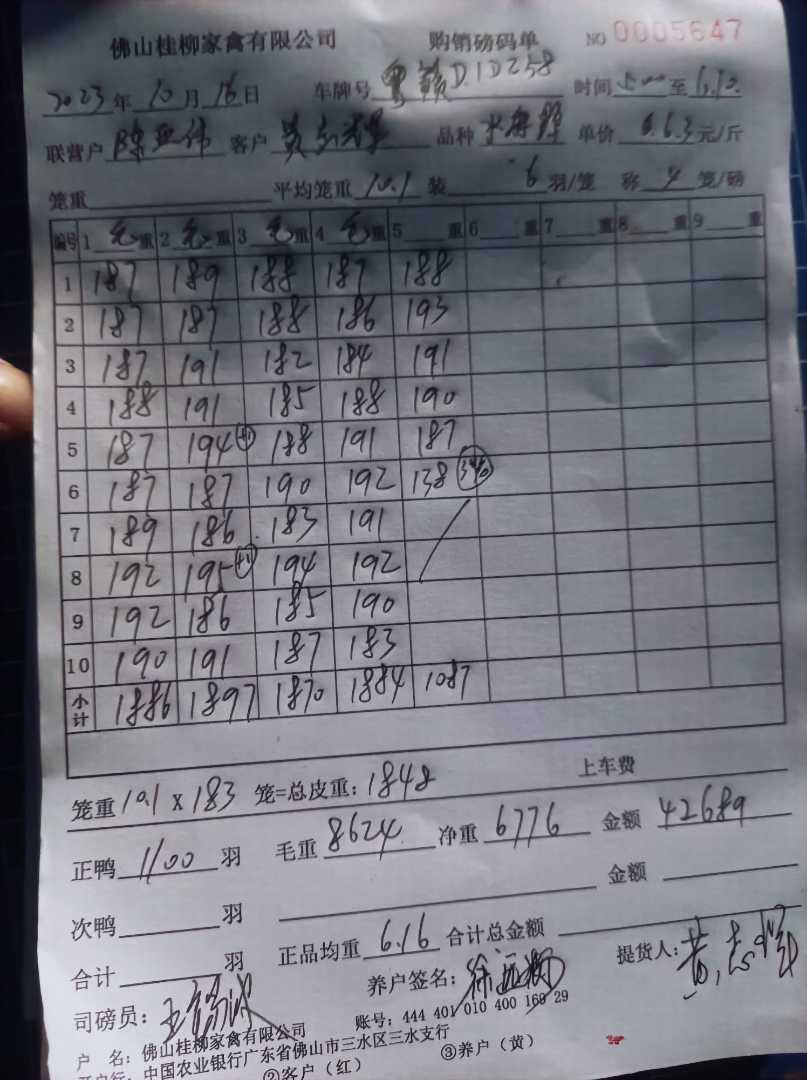 佛山桂柳家禽有限公司 购销磅码单 NO 0005647
2023年10月16日 车牌号 粤 D1D258 时间 至
联营户 陈亚伟 客户 品种 单价 6.63元/斤
笼重 平均笼重 10.1 装 6 羽/笼 称 4 笼/磅
编号 1 毛重 2 毛重 3 毛重 4 毛重 5 重 6 重 7 重 8 重 9 重
1 187 189 188 187 188
2 187 187 188 186 193
3 187 191 182 184 191
4 188 191 185 188 190
5 187 194 +1 188 191 187
6 187 187 190 192 138
7 189 186 183 191
8 192 195 +1 194 192
9 192 186 185 190
10 190 191 187 183
小计 1886 1897 1870 1884 1087
笼重 10.1 x 183 笼=总皮重: 1848 上车费
正鸭 1100 羽 毛重 8624 净重 6776 金额 42689
次鸭 羽 金额
合计 羽 正品均重 6.16 合计总金额
司磅员: 养户签名: 提货人:
户 名: 佛山桂柳家禽有限公司 账号: 444 401 010 400 160 29
开户行: 中国农业银行广东省佛山市三水区三水支行
②客户（红） ③养户（黄）